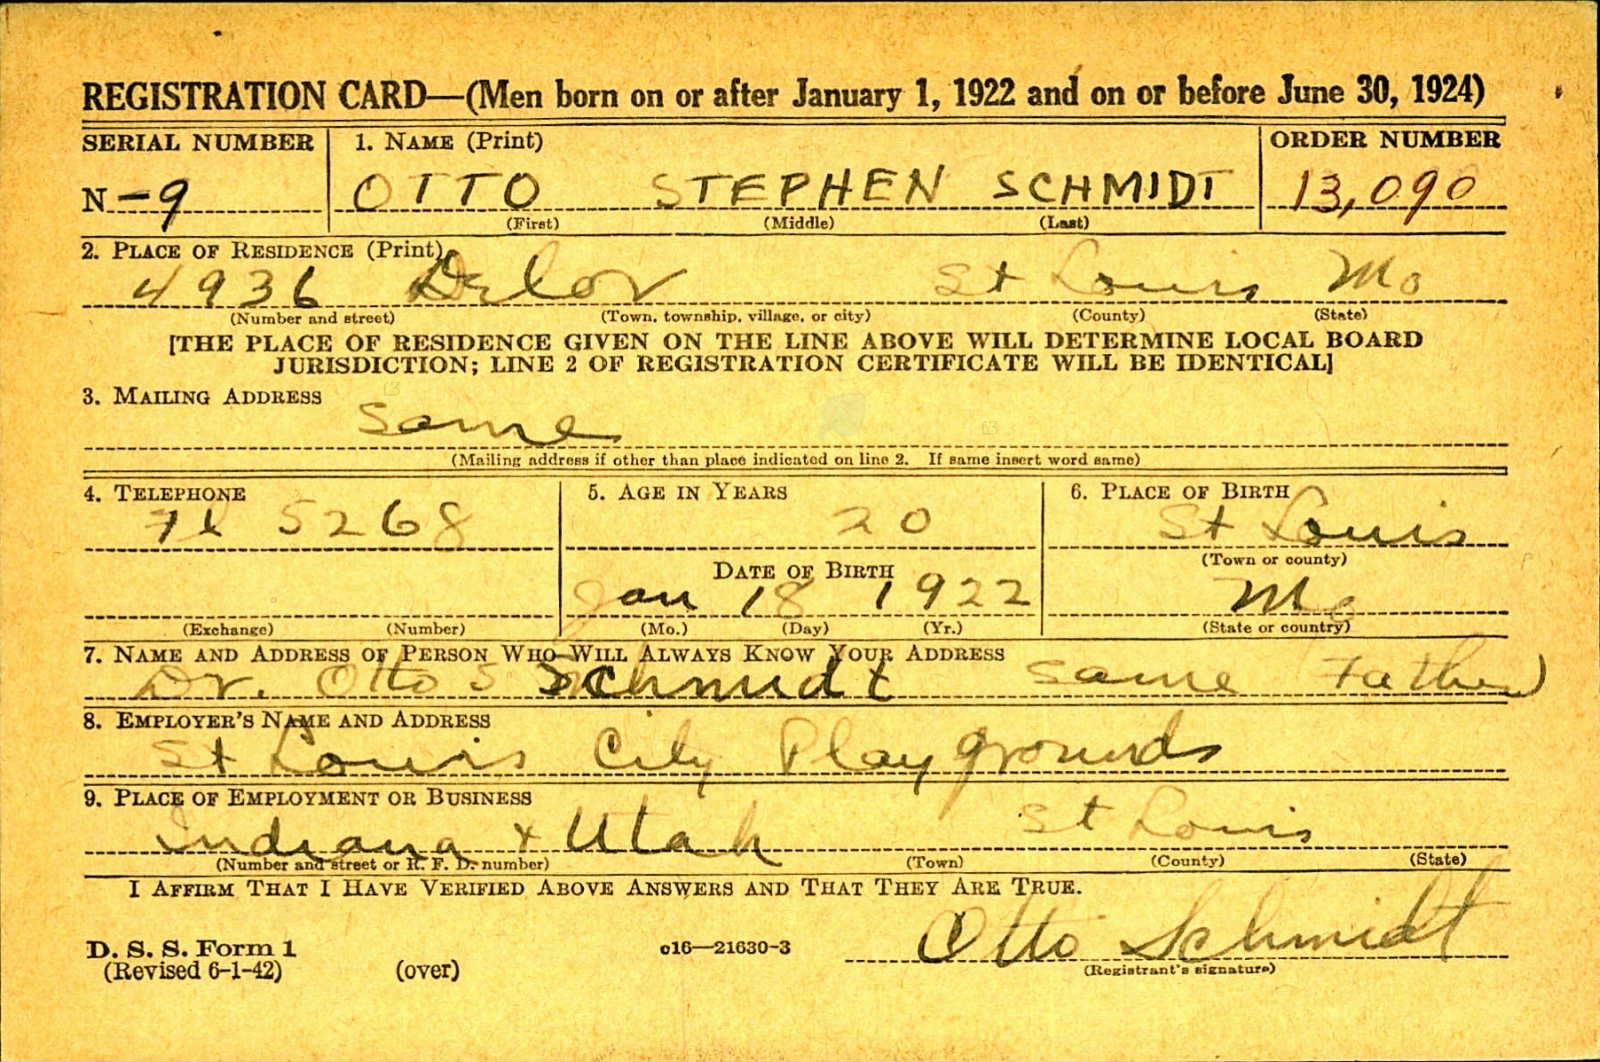 REGISTRATION CARD—(Men born on or after January 1, 1922 and on or before June 30, 1924)
SERIAL NUMBER 1. NAME (Print) ORDER NUMBER
N-9 OTTO STEPHEN SCHMIDT 13,090
(First) (Middle) (Last)
2. PLACE OF RESIDENCE (Print)
4936 Delor St Louis Mo
(Number and street) (Town, township, village, or city) (County) (State)
[THE PLACE OF RESIDENCE GIVEN ON THE LINE ABOVE WILL DETERMINE LOCAL BOARD
JURISDICTION; LINE 2 OF REGISTRATION CERTIFICATE WILL BE IDENTICAL]
3. MAILING ADDRESS
Same
(Mailing address if other than place indicated on line 2. If same insert word same)
4. TELEPHONE 5. AGE IN YEARS 6. PLACE OF BIRTH
Fl 5268 20 St Louis
(Town or county)
DATE OF BIRTH
Jan 18 1922 Mo
(Exchange) (Number) (Mo.) (Day) (Yr.) (State or country)
7. NAME AND ADDRESS OF PERSON WHO WILL ALWAYS KNOW YOUR ADDRESS
Dr. Otto S Schmidt Same Father)
8. EMPLOYER'S NAME AND ADDRESS
St Louis City Playgrounds
9. PLACE OF EMPLOYMENT OR BUSINESS
Indiana + Utah St Louis
(Number and street or R. F. D. number) (Town) (County) (State)
I AFFIRM THAT I HAVE VERIFIED ABOVE ANSWERS AND THAT THEY ARE TRUE.
Otto Schmidt
D. S. S. Form 1 c16—21630-3
(Registrant's signature)
(Revised 6-1-42) (over)